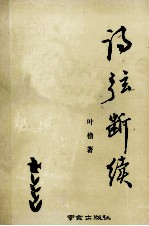 诗弦断续
叶橹著
出版社